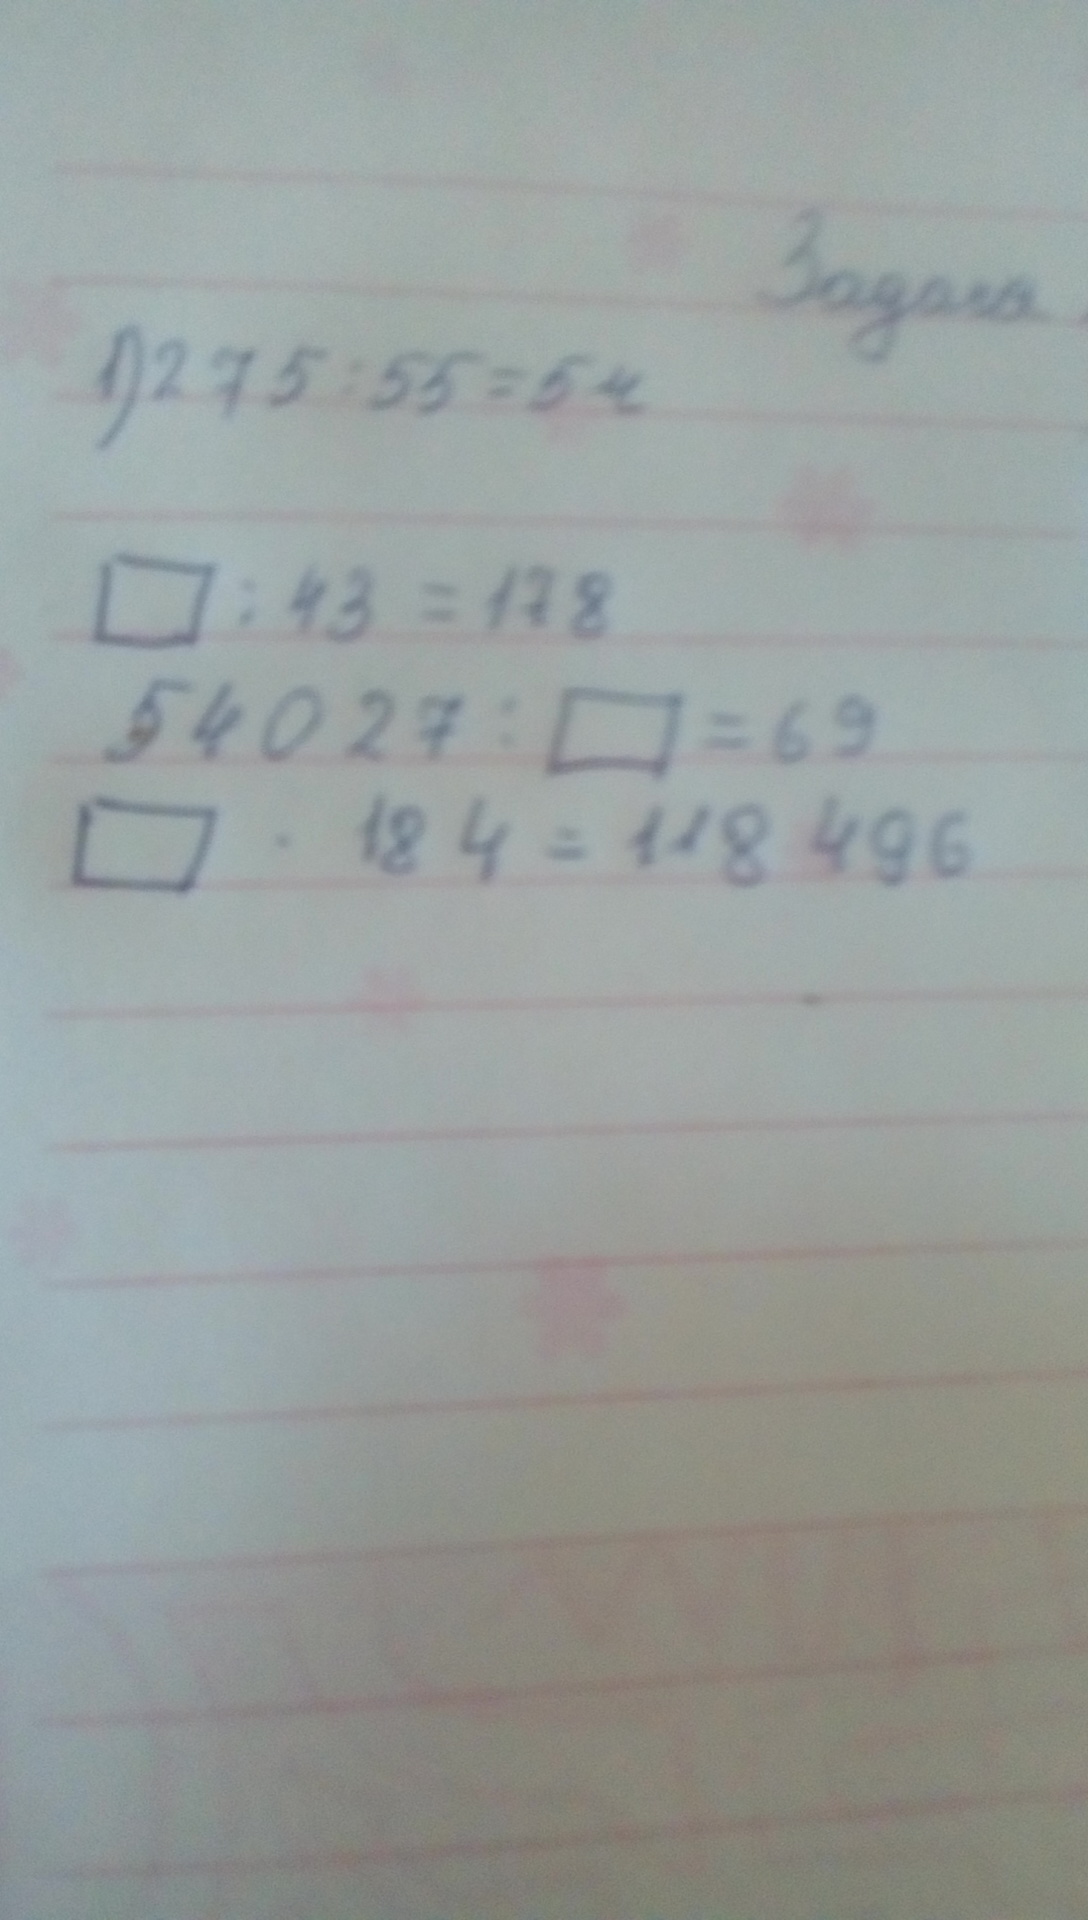 Задача
1) 275 : 55 = 5ч
□ : 43 = 178
54027 : □ = 69
□ · 184 = 118 496